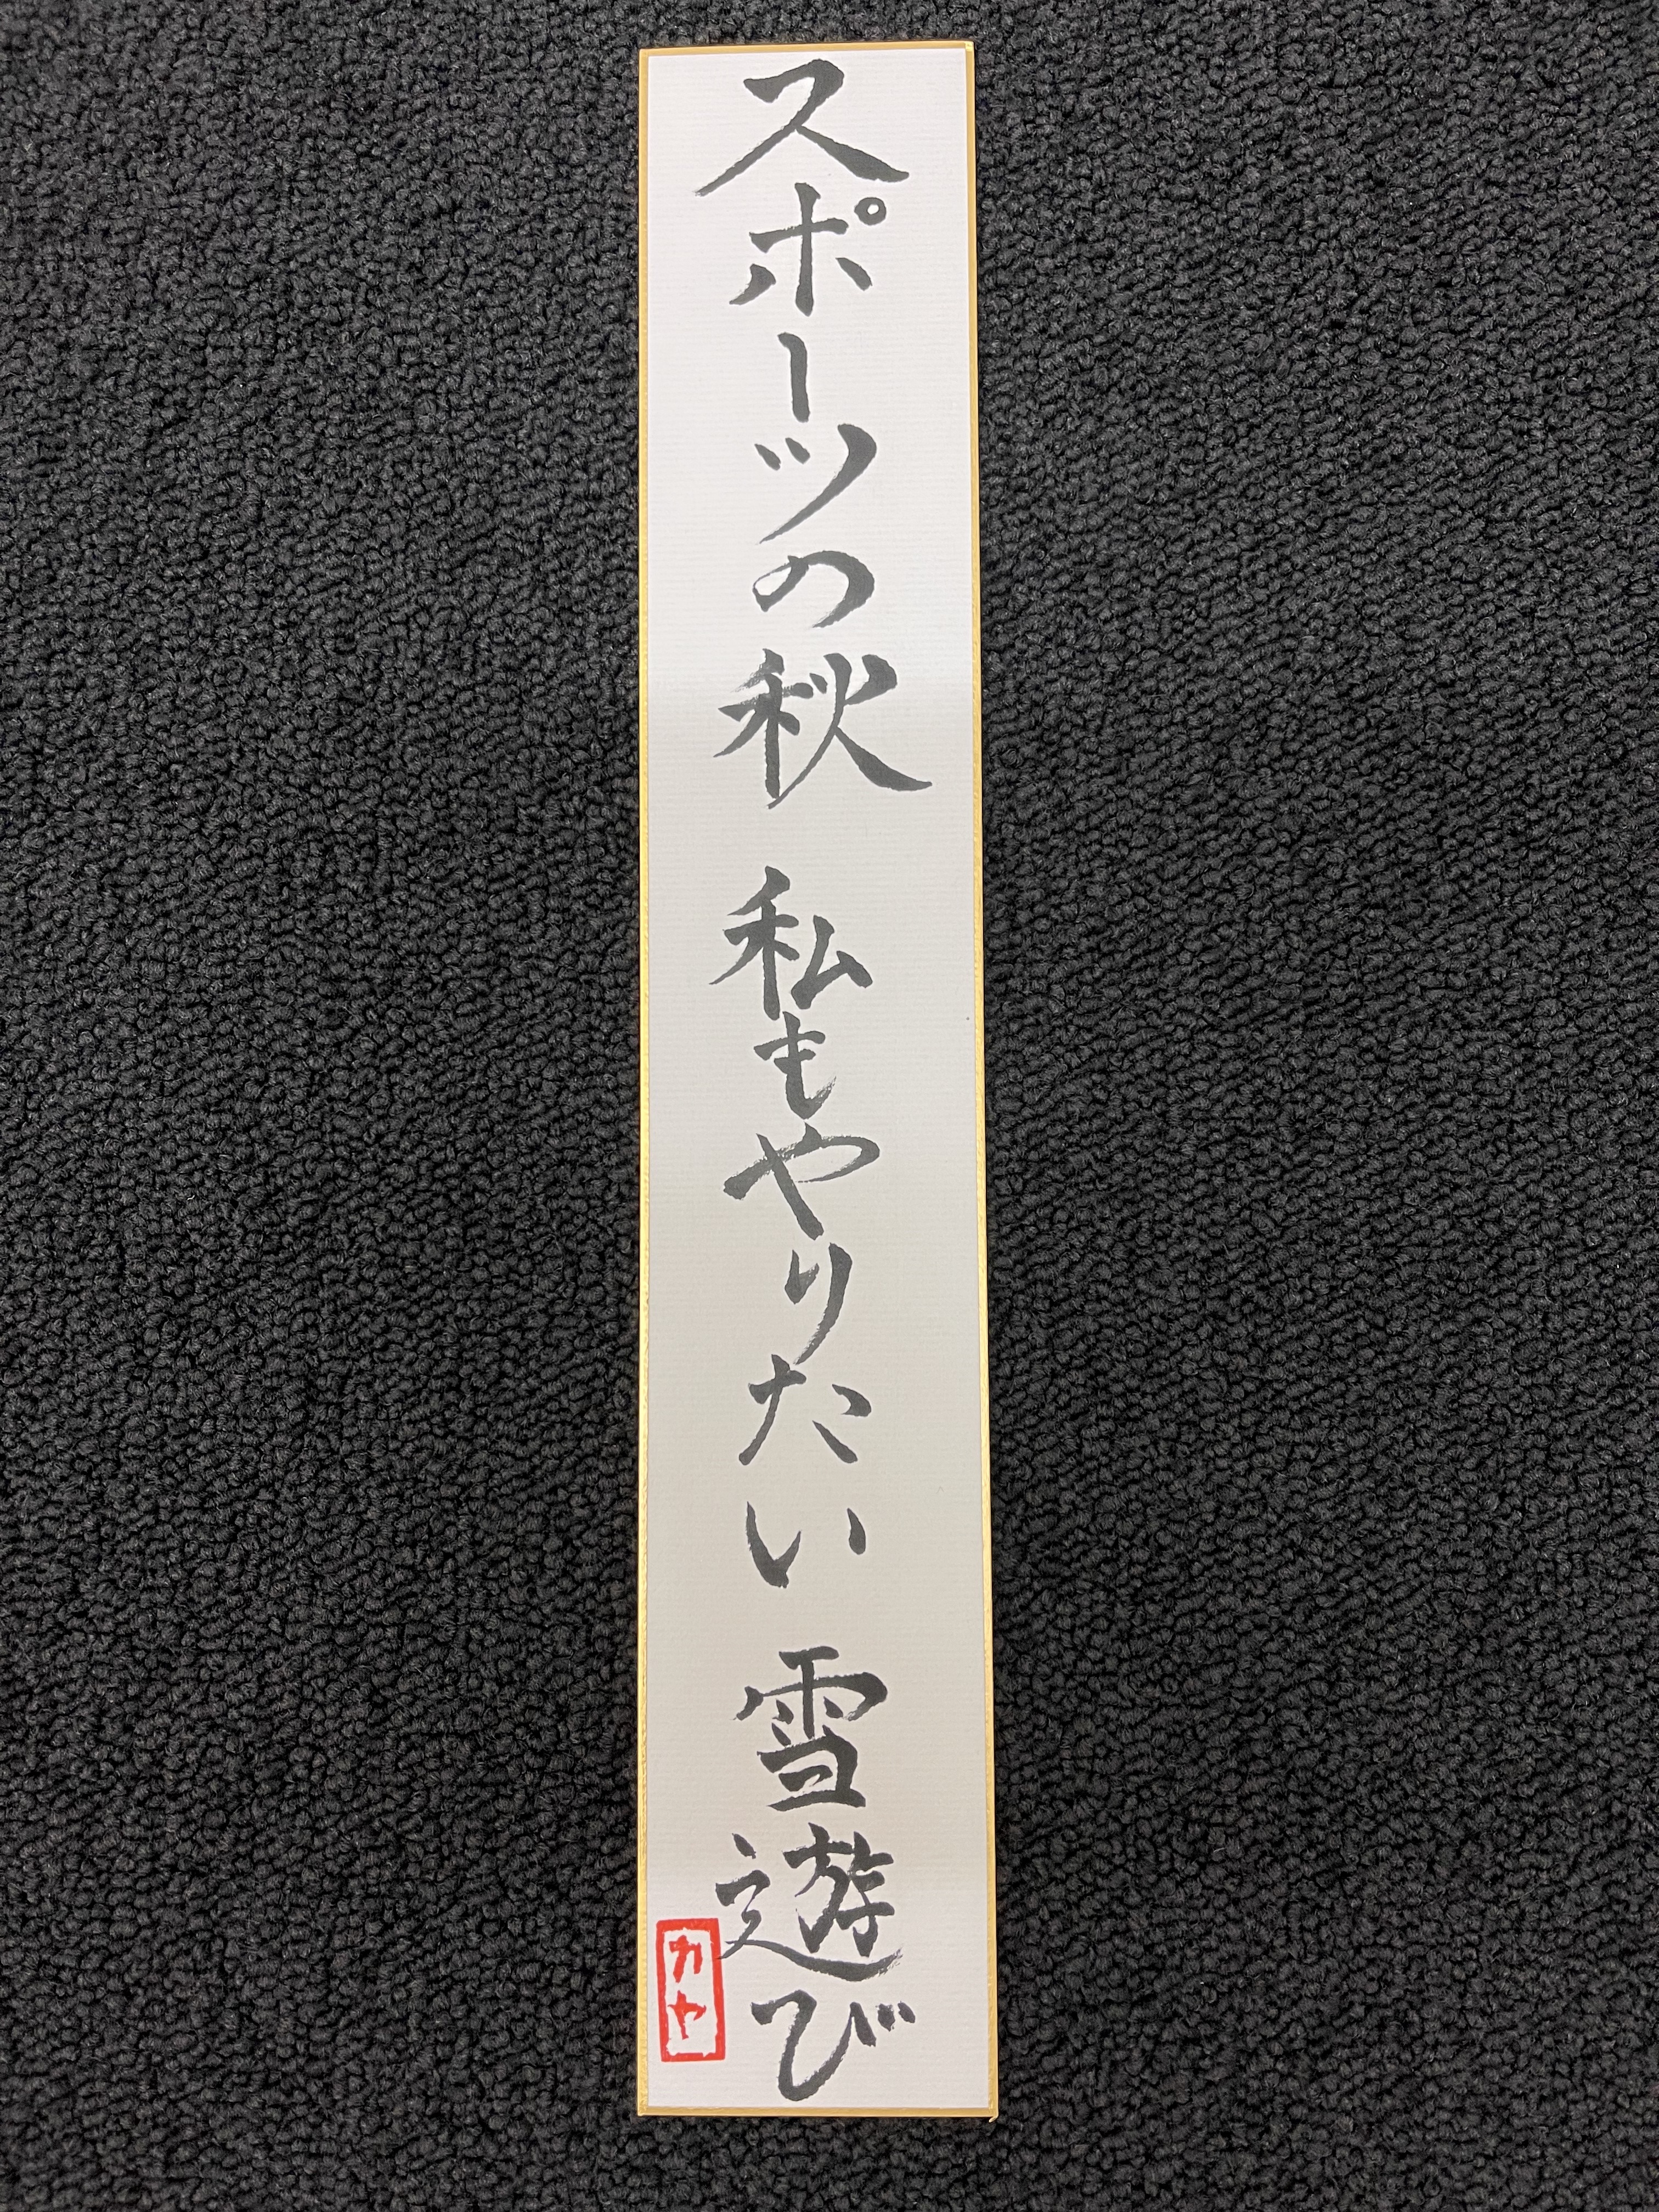 スポーツの秋 私もやりたい 雪遊び
カヤ